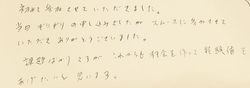 初めて参加させていただきました。
当日ギリギリの申し込みでしたが スムーズに参加させて
いただき ありがとうございました。
課題ばかりですが これからも 料金を作って 経験値を
あげたいと思います。